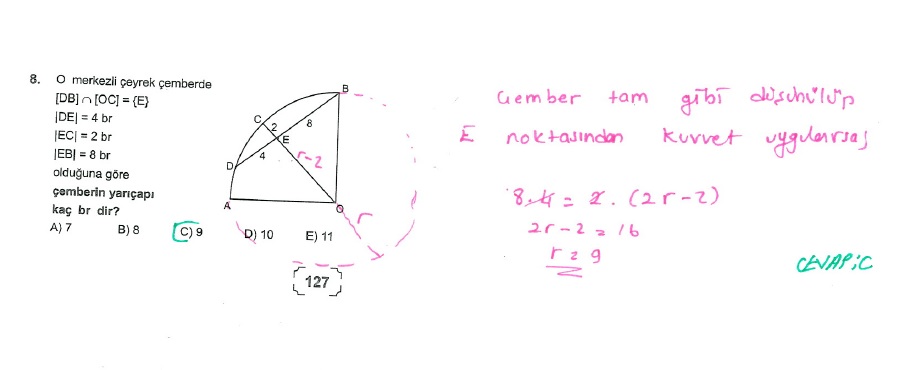 8. O merkezli çeyrek çemberde
[DB] ∩ [OC] = {E}
|DE| = 4 br
|EC| = 2 br
|EB| = 8 br
olduğuna göre
çemberin yarıçapı
kaç br dir?
A) 7 B) 8 C) 9 D) 10 E) 11
B
C
2
8
E
r-2
D
4
A
O
r
127
Çember tam gibi düşünülüp
E noktasından kuvvet uygularsaş
8.4 = 2.(2r-2)
2r-2 = 16
r = 9
CEVAP: C